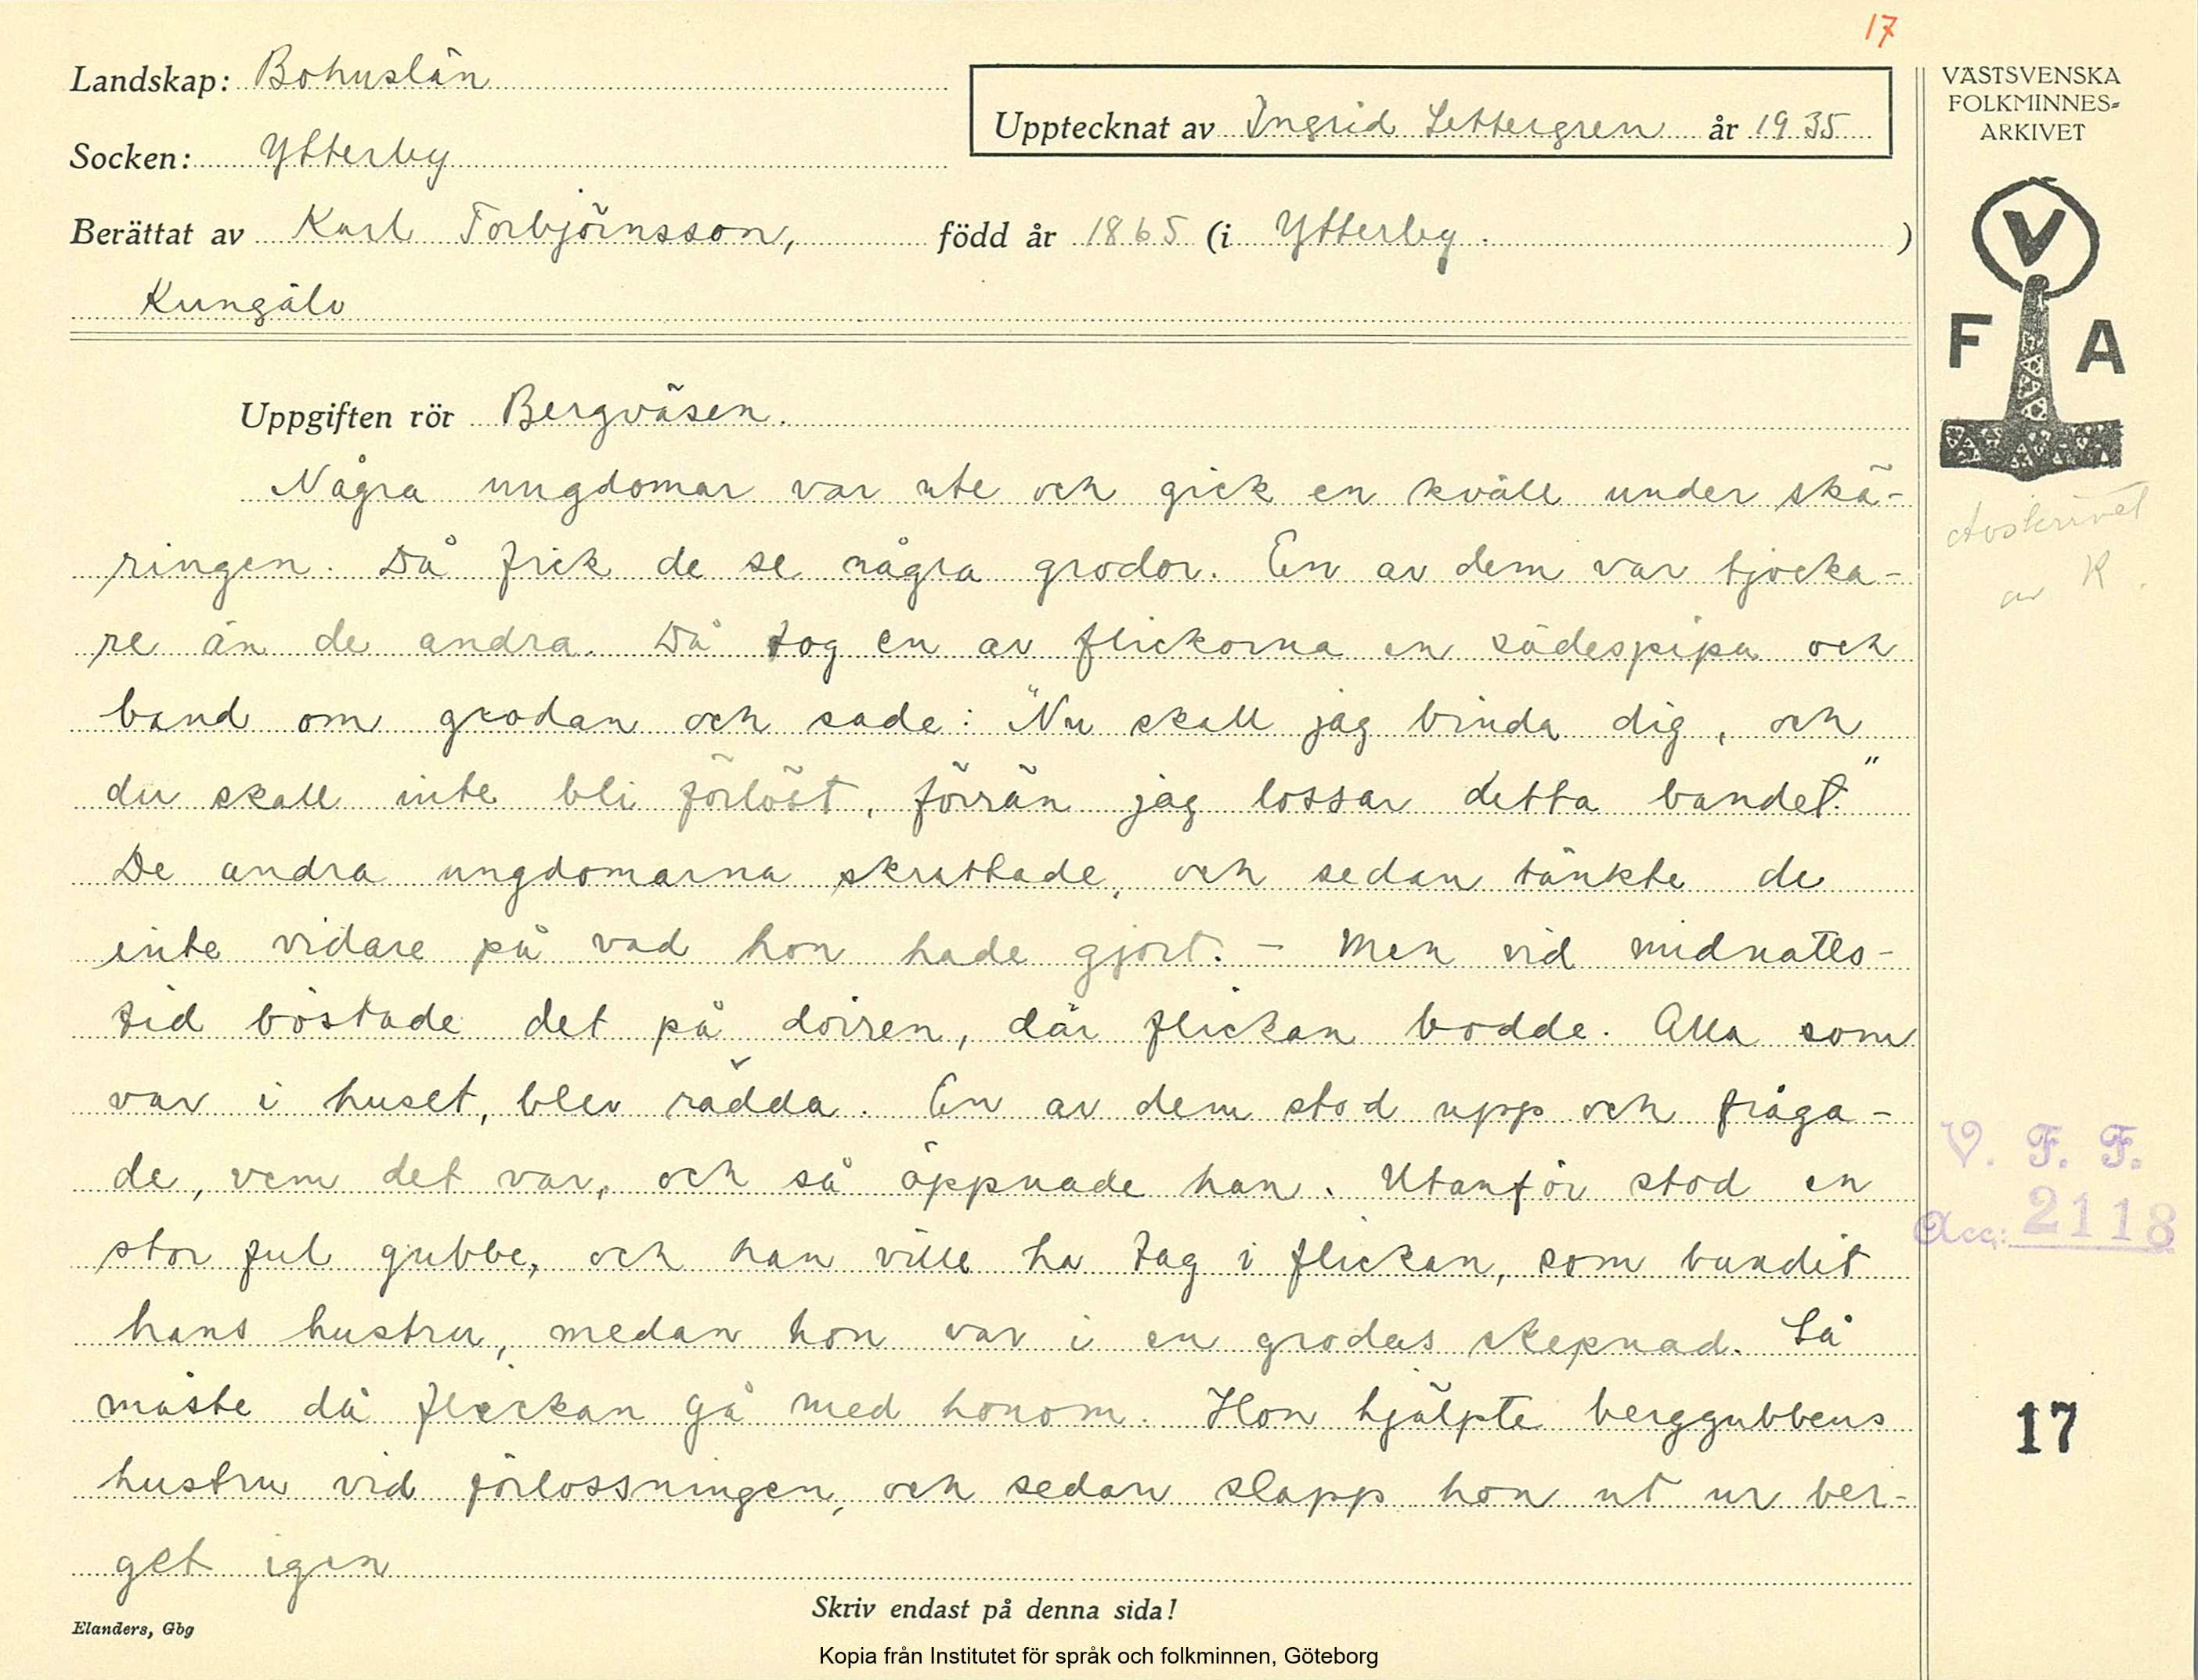 17
Landskap: Bohuslän
Upptecknat av Ingrid Settergren år 1935
VÄSTSVENSKA
FOLKMINNES-
ARKIVET
Socken: Ytterby
Berättat av Karl Torbjörnsson, född år 1865 (i Ytterby. )
Kungälv
V
F A
Uppgiften rör Bergväsen.
Några ungdomar var ute och gick en kväll under skä-
ringen. Då fick de se några grodor. En av dem var tjocka-
re än de andra. Då tog en av flickorna en sädespipa och
band om grodan och sade: "Nu skall jag binda dig, och
du skall inte bli förlöst, förrän jag lossar detta bandet."
De andra ungdomarna skrattade, och sedan tänkte de
inte vidare på vad hon hade gjort. - Men vid midnatts-
tid böstade det på dörren, där flickan bodde. Alla som
var i huset, blev rädda. En av dem stod upp och fråga-
de, vem det var, och så öppnade han. Utanför stod en
stor ful gubbe, och han ville ha tag i flickan, som bundit
hans hustru, medan hon var i en grodas skepnad. Så
måste då flickan gå med honom. Hon hjälpte berggubbens
hustru vid förlossningen, och sedan slapp hon ut ur ber-
get igen
Avskrivet
av K.
V. F. F.
Acc: 2118
17
Skriv endast på denna sida!
Elanders, Gbg
Kopia från Institutet för språk och folkminnen, Göteborg